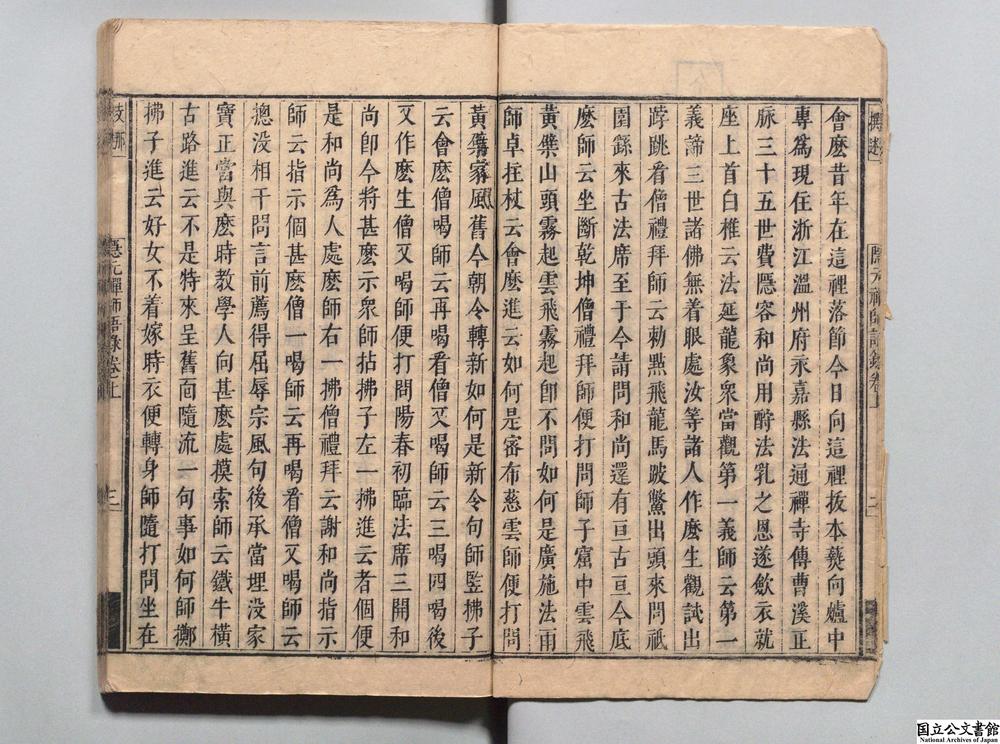 會麽昔年在這裡落節今日向這裡拔本爇向爐中
專爲現住浙江溫州府永嘉縣法通禪寺傳曹溪正
脉三十五世費隱容和尚用酧法乳之恩遂歛衣就
座上首白椎云法延龍象衆當觀第一義師云第一
義諦三世諸佛無着眼處汝等諸人作麽生觀試出
䟫跳看僧禮拜師云勑㸃飛龍馬跛鱉出頭來問祇
園繇來古法席至于今請問和尚還有亘古亘今底
麽師云坐斷乾坤僧禮拜師便打問師子窟中雲飛
黃檗山頭霧起雲飛霧起卽不問如何是廣施法雨
師卓拄杖云會麽進云如何是審布慈雲師便打問
黃檗家風舊今朝令轉新如何是新令句師竪拂子
云會麽僧喝師云再喝看僧又喝師云三喝四喝後
又作麽生僧又喝師便打問陽春初臨法席三開和
尚卽今將甚麽示衆師拈拂子左一拂進云者個便
是和尚爲人處麽師右一拂僧禮拜云謝和尚指示
師云指示個甚麽僧一喝師云再喝看僧又喝師云
揔没相干問言前薦得屈辱宗風句後承當埋没家
寶正當與麽時教學人向甚麽處摸索師云鐵牛橫
古路進云不是特來呈舊面隨流一句事如何師擲
拂子進云好女不着嫁時衣便轉身師隨打問坐在
隱元禪師語錄卷上
三
國立公文書館
National Archives of Japan